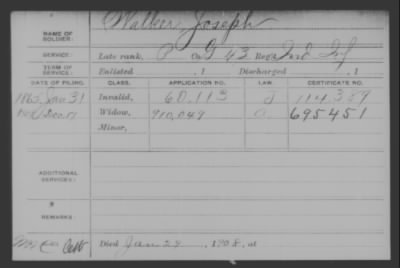 Walker, Joseph
NAME OF SOLDIER:
SERVICE: Late rank, P Co. G 43 Reg't Ind Inf
TERM OF SERVICE: Enlisted , 1 Discharged , 1
DATE OF FILING. CLASS. APPLICATION NO. LAW. CERTIFICATE NO.
1865 Jan 31 Invalid, 60,113 114,389
Dec. 17 Widow, 910,049 695451
Minor,
ADDITIONAL SERVICES:
REMARKS:
Died Jan 29, 1908, at